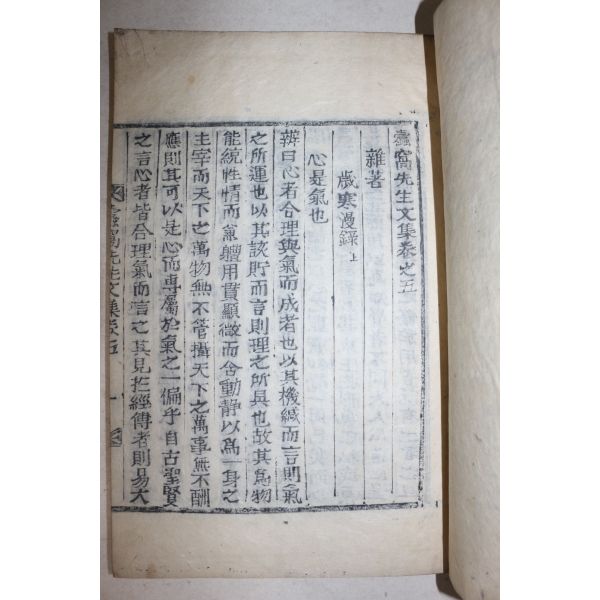 蠹窩先生文集卷之五
雜著
歲寒漫錄上
心是氣也
辨曰心者合理與氣而成者也以其機緘而言則氣
之所運也以其該貯而言則理之所具也故其爲物
能統性情而兼體用貫顯微而合動靜以爲一身之
主宰而天下之萬物無不管攝天下之萬事無不酬
應則其可以是心而專屬於氣之一偏乎自古聖賢
之言心者皆合理氣而言之其見於經傳者則易大
蠹窩先生文集卷五
一